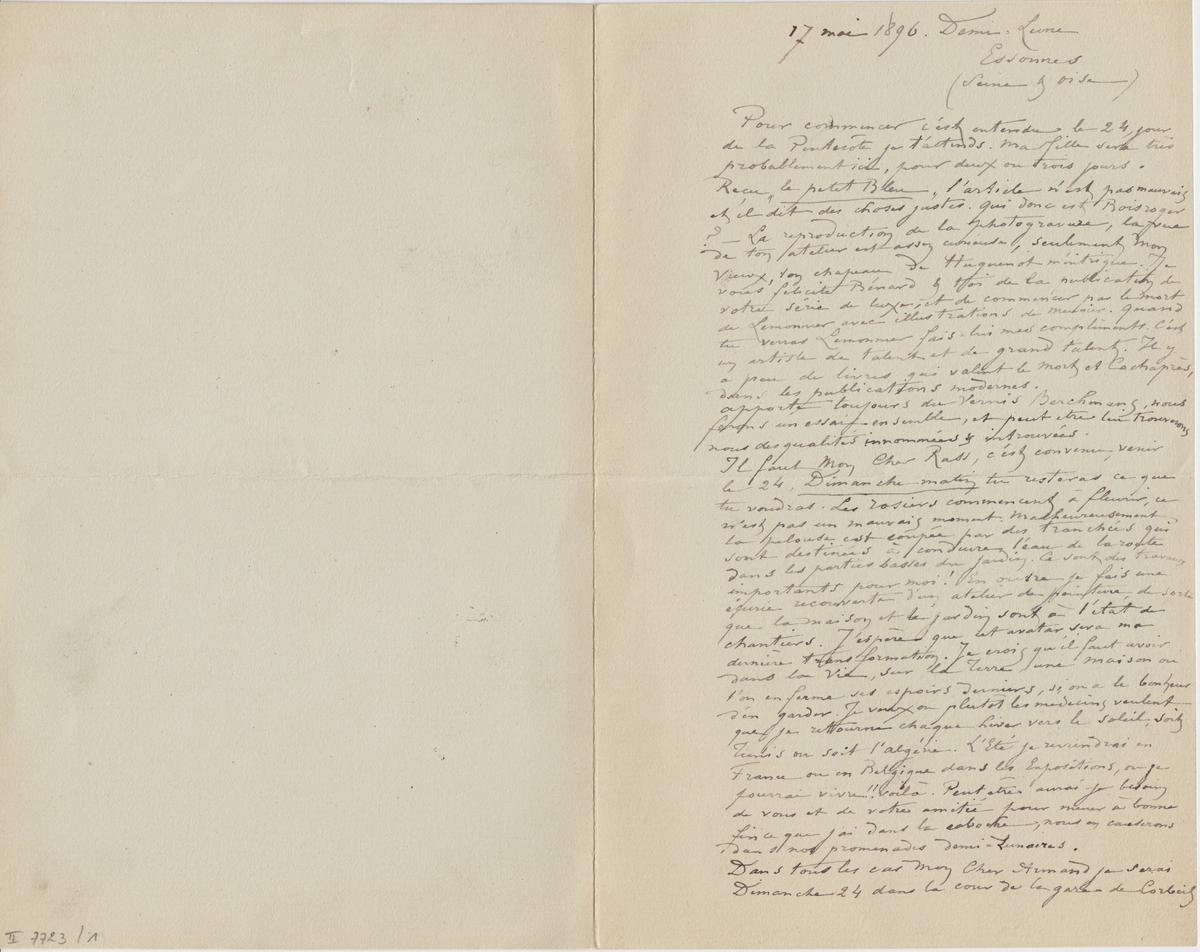 17 mai 1896. Demi-Lune
Essonnes
(Seine & Oise)
Pour commencer c'est entendu le 24, jour
de la Pentecôte je t'attends. Ma fille sera très
probablement ici, pour deux ou trois jours.
Reçu "le petit Bleu", l'article n'est pas mauvais
et il dit des choses justes. Qui donc est Boisroger
? — La reproduction de la photogravure, la vue
de ton atelier est assez curieuse, seulement mon
vieux, ton chapeau de Huguenot m'intrigue. Je
vous félicite Bénard & toi de la publication de
votre série de luxe, et de commencer par le mort
de Lemonnier avec illustrations de meunier. Quand
tu verras Lemonnier fais-lui mes compliments. C'est
un artiste de talent et de grand talent. Il y
a peu de livres qui valent le Mort et Cachaprès,
dans les publications modernes.
apporte toujours du Vernis Berchmans, nous
ferons un essai ensemble, et peut être lui trouverons
nous des qualités innommées & introuvées.
Il faut Mon Cher Rass, c'est convenu, venir
le 24, Dimanche matin tu resteras ce que
tu voudras. Les rosiers commencent à fleurir, ce
n'est pas un mauvais moment. Malheureusement
la pelouse est coupée par des tranchées qui
sont destinées à conduire l'eau de la route
dans les parties basses du jardin. Ce sont des travaux
importants pour moi! En outre je fais une
écurie recouverte d'un atelier de peinture, de sorte
que la maison et le jardin sont à l'état de
chantiers. J'espère que cet avatar sera ma
dernière transformation. Je crois qu'il faut avoir
dans la Vie, sur la Terre une maison ou
l'on enferme ses espoirs derniers, si on a le bonheur
d'en garder. Je veux ou plutôt les médecins veulent
que je retourne chaque hiver vers le soleil, soit
Tunis ou soit l'algérie. L'Eté je reviendrai en
France ou en Belgique dans les Expositions, ou je
pourrai vivre!! voilà. Peut être aurai-je besoin
de vous et de votre amitié pour mener à bonne
fin ce que j'ai dans la caboche, nous en causerons
dans nos promenades demi-Lunaires.
Dans tous les cas Mon Cher Armand je serai
Dimanche 24 dans la cour de la gare de Corbeil
II 7723 / 1